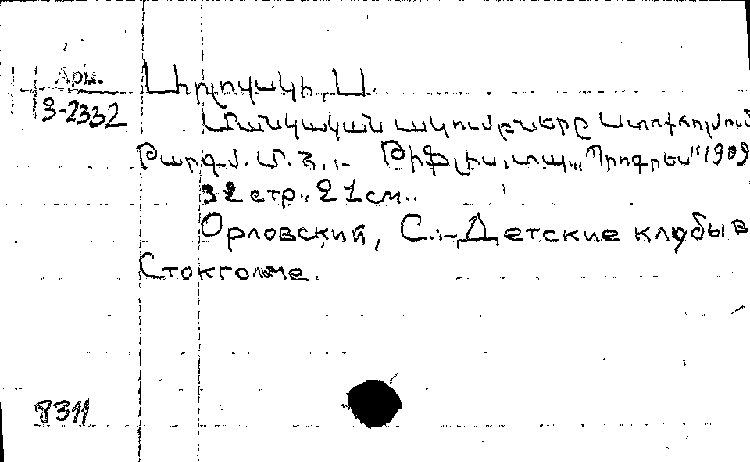 Арм.
3-2332
Մանկական ակումբները Ստոկոլմում
Թարգմ. Մ. Հ.,- Թիֆլիս, տպ. „Պրոգրես“ 1909
32 стр., 21 см..
Орловский, С.,-Детские клубы в
Стокголме.
8311